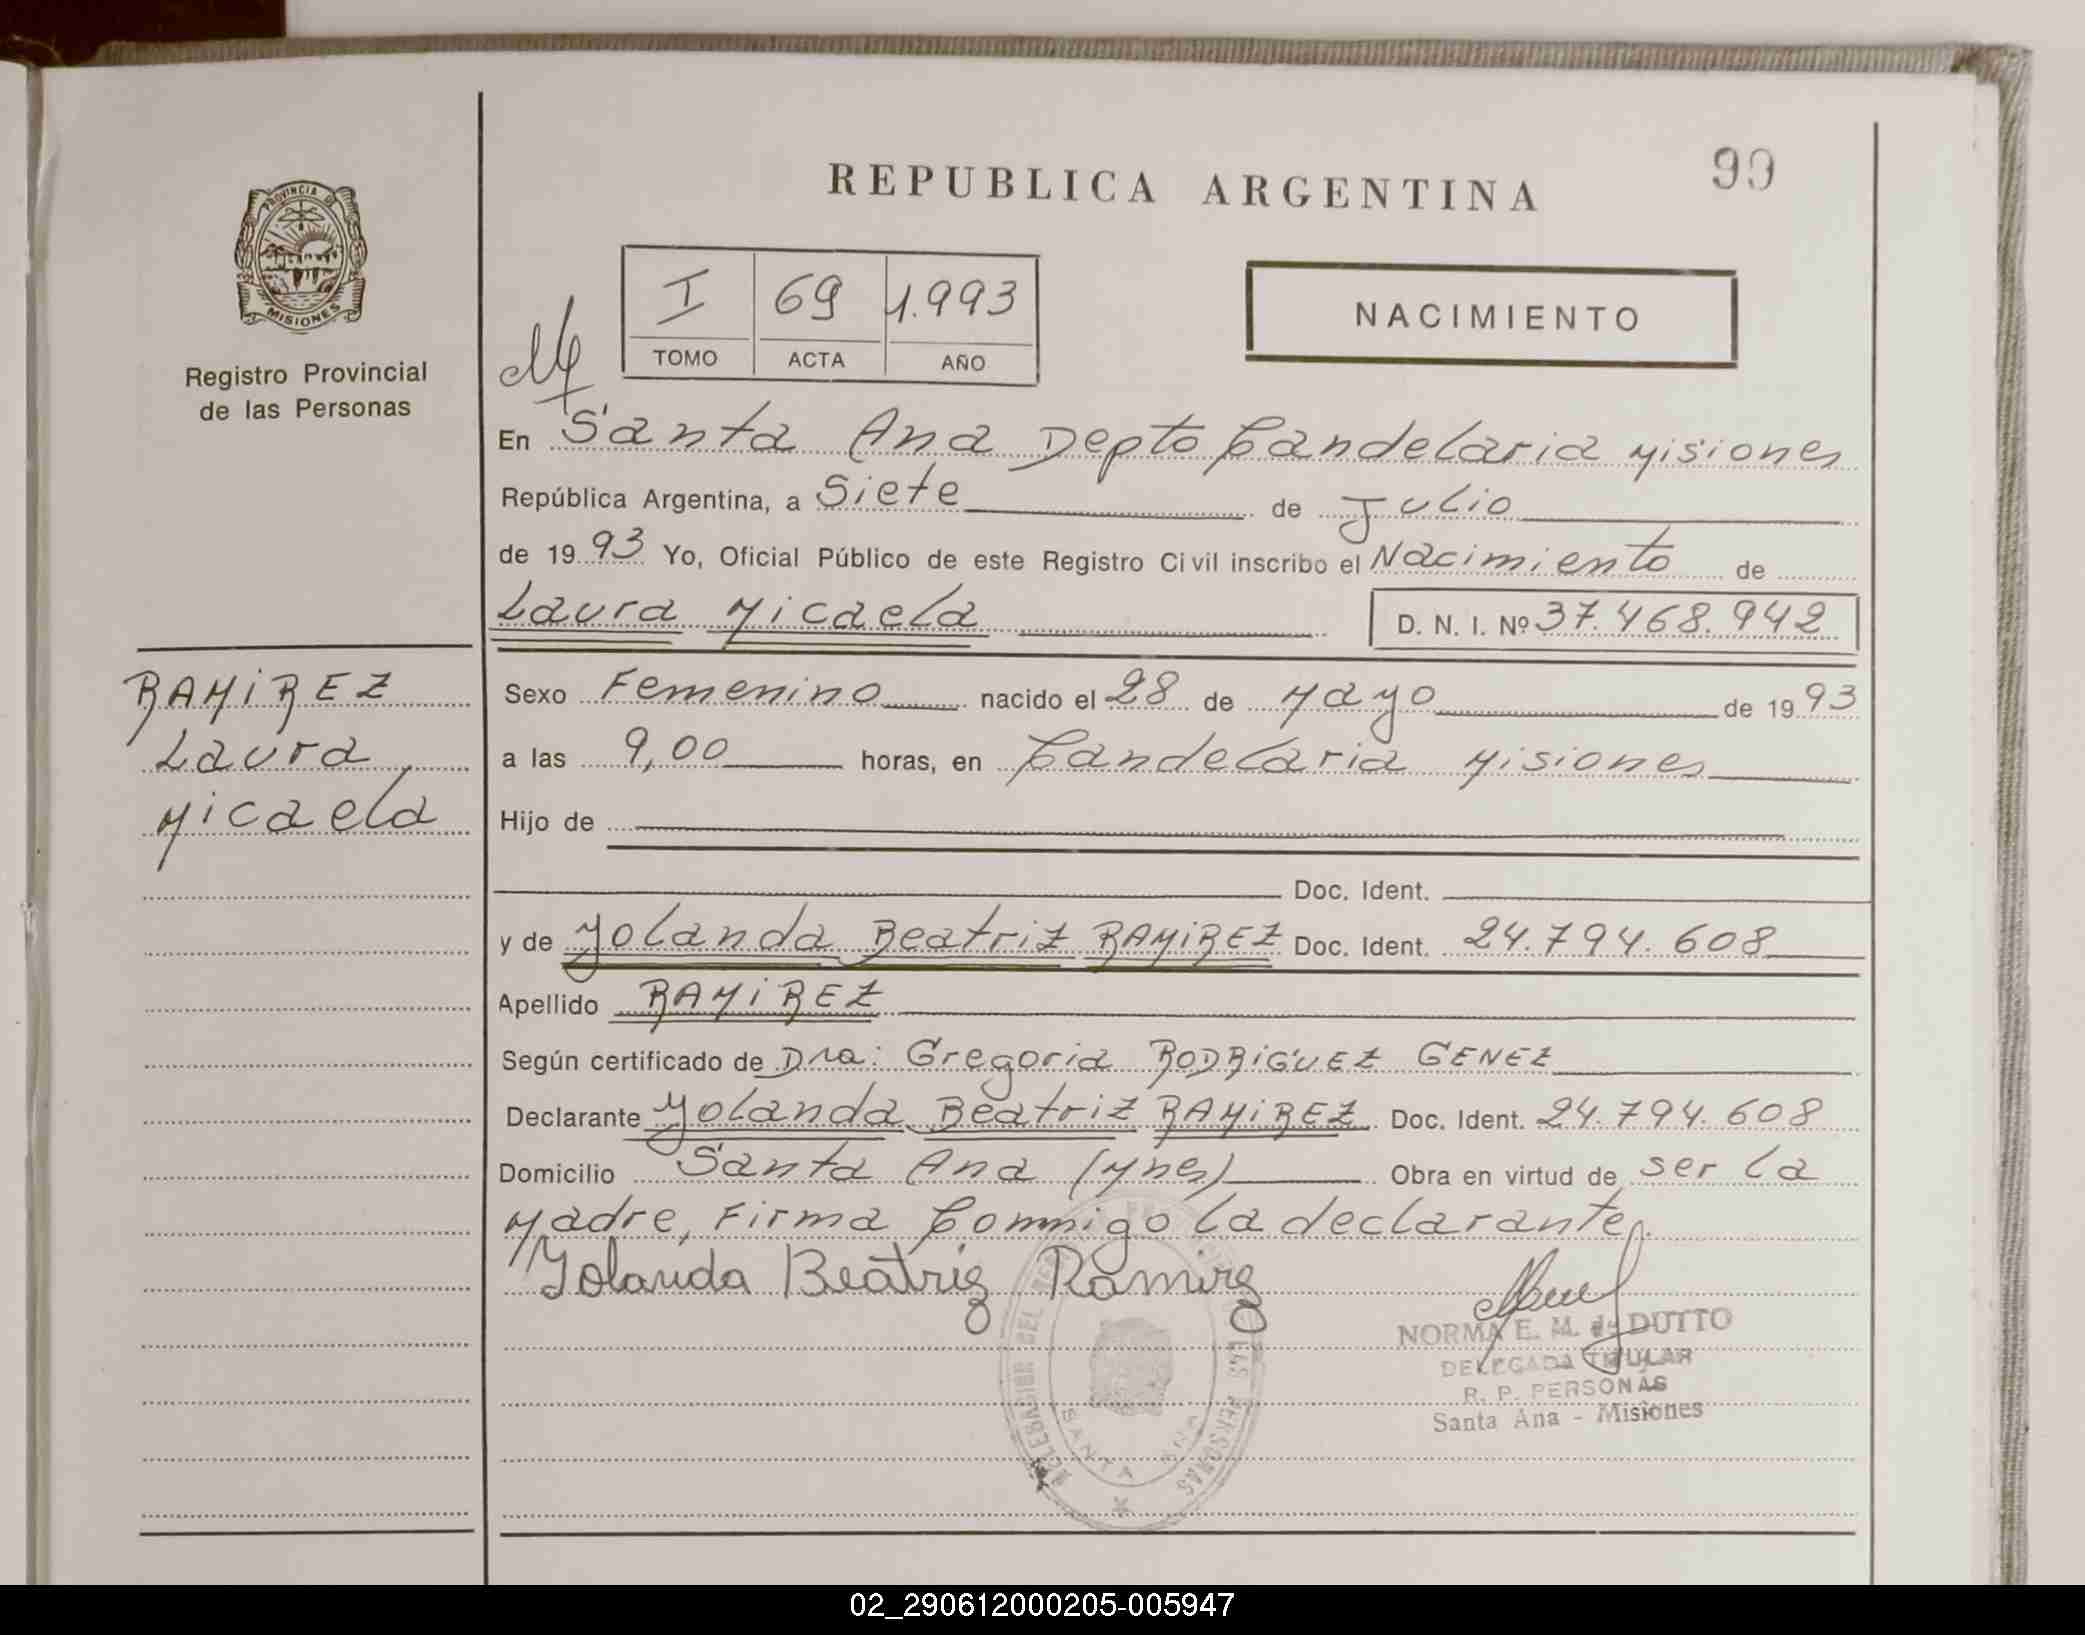 REPUBLICA ARGENTINA
99
PROVINCIA DE
MISIONES
Registro Provincial
de las Personas
I 69 1.993
TOMO ACTA AÑO
NACIMIENTO
En Santa Ana Depto Candelaria Misiones
República Argentina, a Siete de Julio
de 1993 Yo, Oficial Público de este Registro Civil inscribo el Nacimiento de
Laura Micaela D. N. I. Nº 37.468.942
RAMIREZ
Laura
Micaela
Sexo Femenino nacido el 28 de Mayo de 1993
a las 9,00 horas, en Candelaria Misiones
Hijo de
Doc. Ident.
y de Yolanda Beatriz RAMIREZ Doc. Ident. 24.794.608
Apellido RAMIREZ
Según certificado de Dra: Gregoria RODRIGUEZ GENEZ
Declarante Yolanda Beatriz RAMIREZ Doc. Ident. 24.794.608
Domicilio Santa Ana (Mnes) Obra en virtud de ser la
Madre, Firma Commigo la declarante.
Yolanda Beatriz Ramirez
NORMA E. M. de DUTTO
DELEGADA TITULAR
R. P. PERSONAS
Santa Ana - Misiones
SANTA ANA
02_290612000205-005947